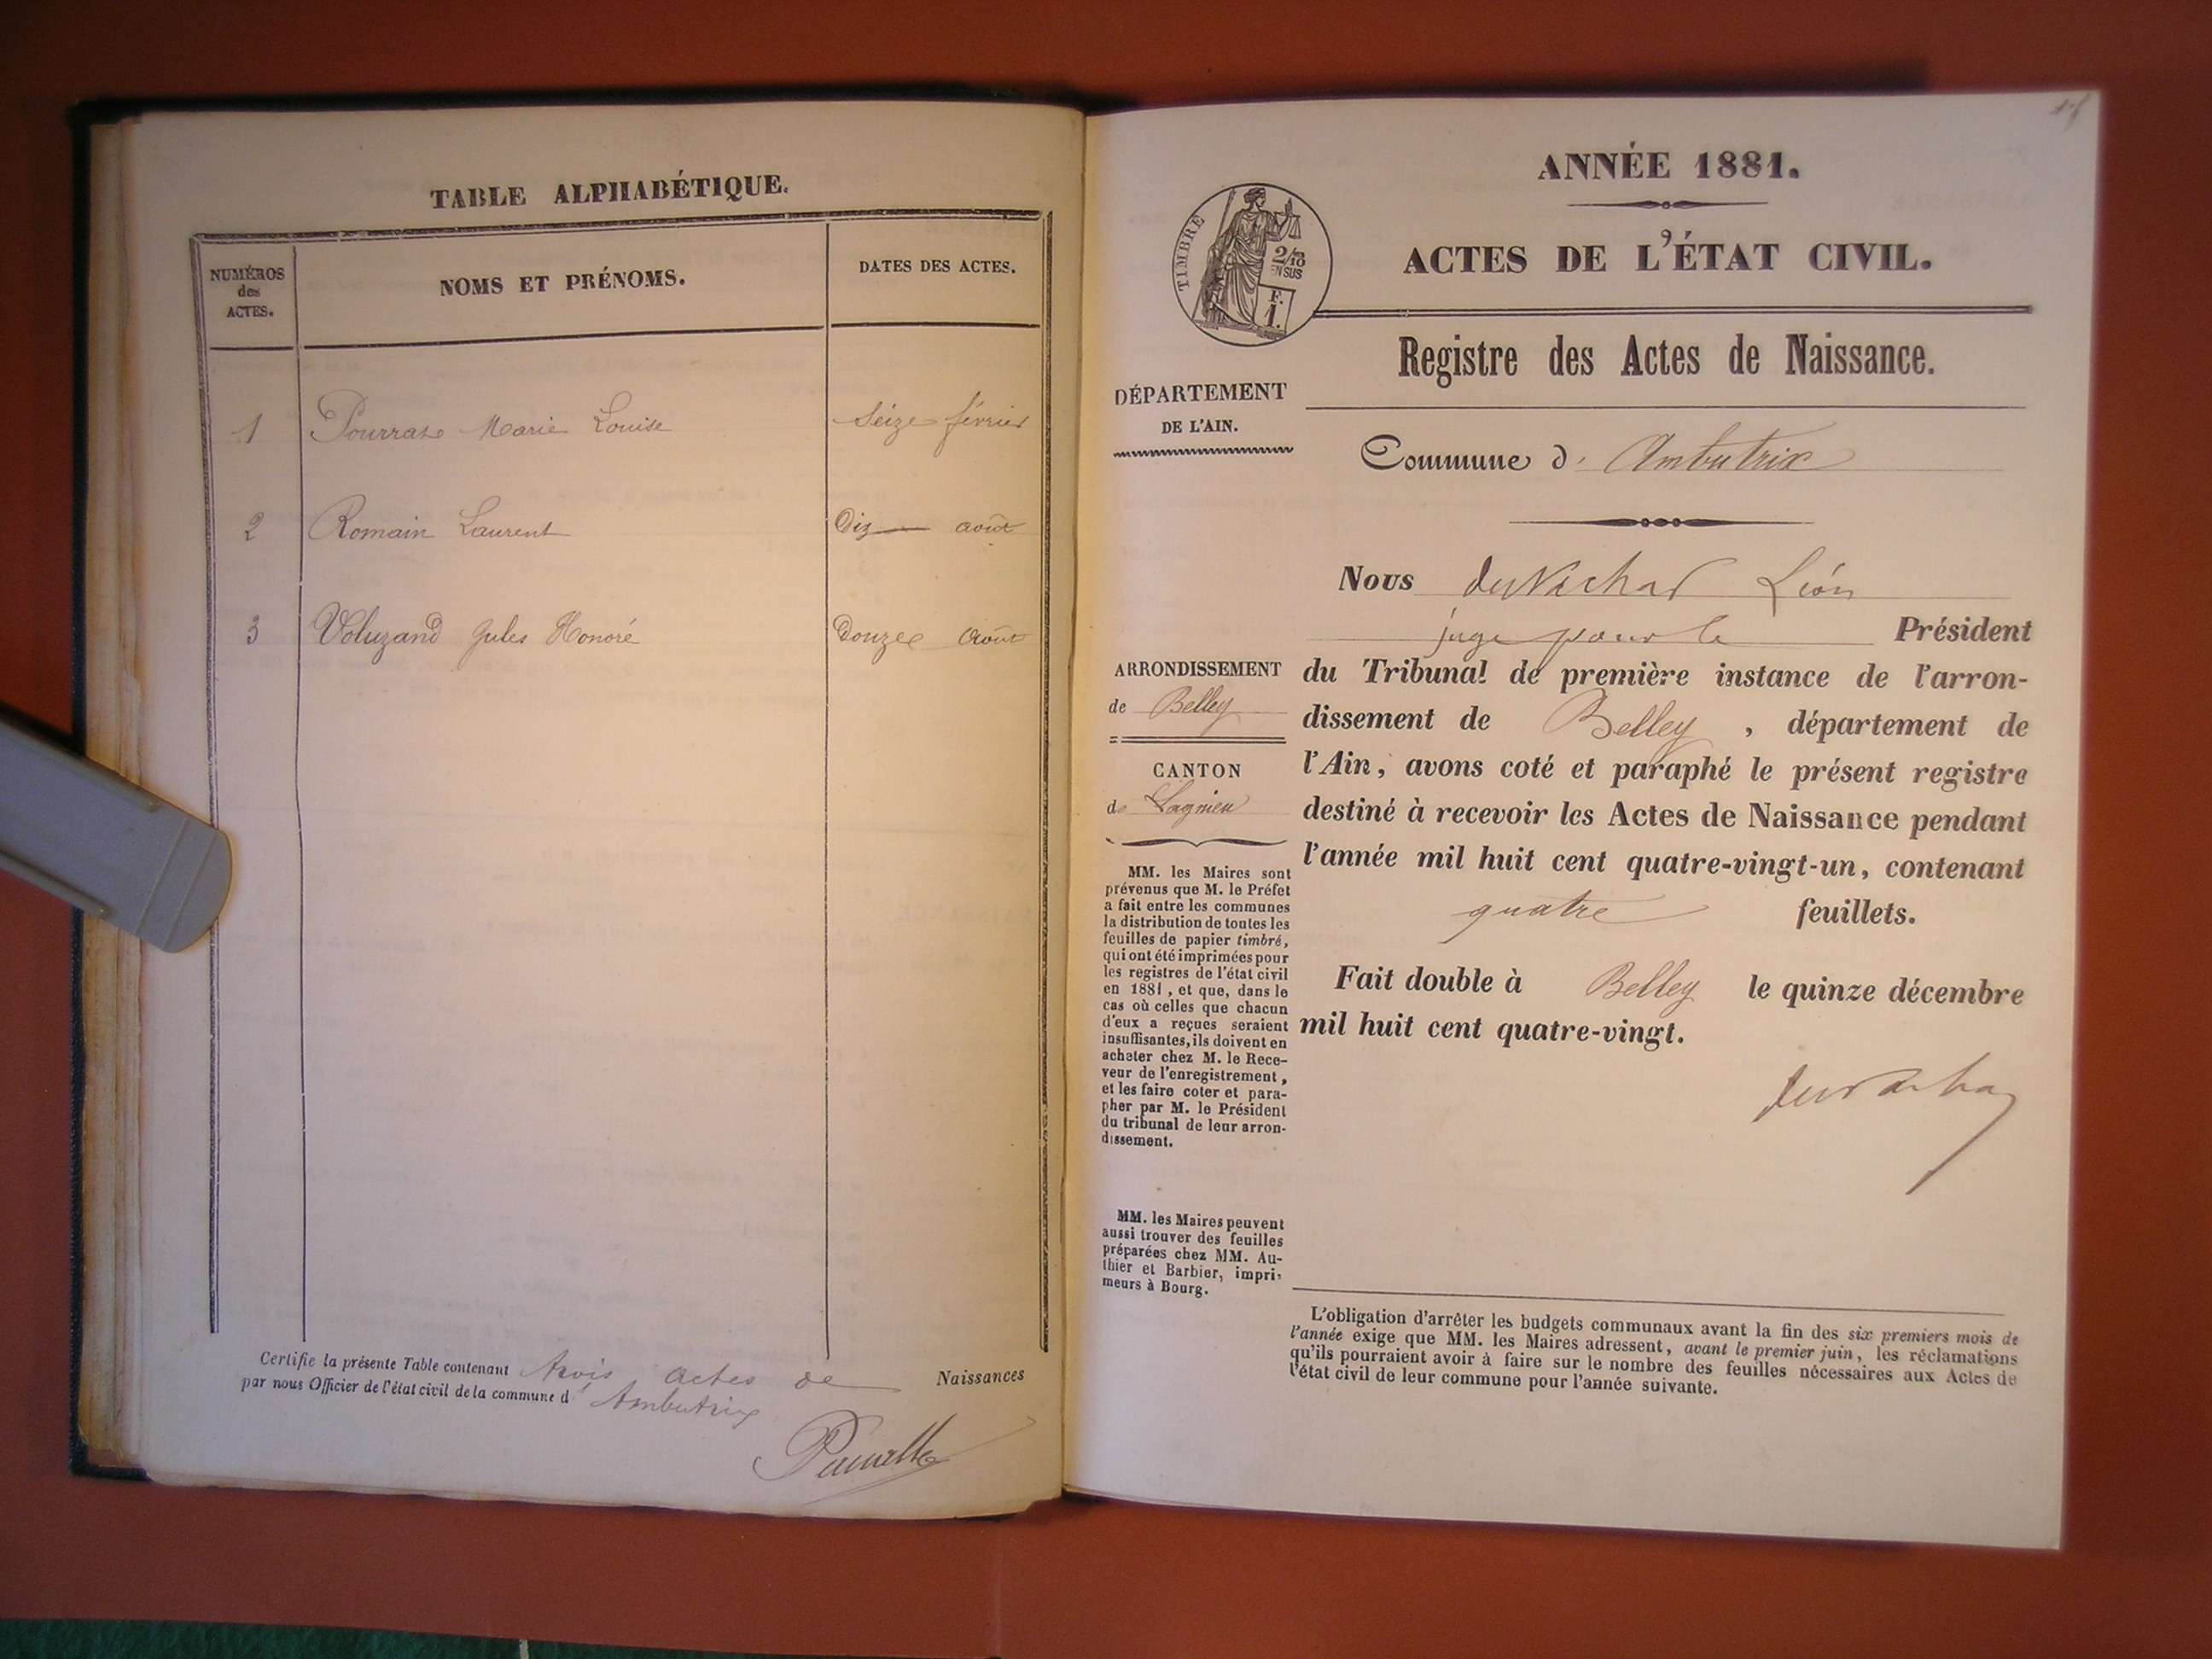 TABLE ALPHABÉTIQUE.
NUMÉROS
des
ACTES.
NOMS ET PRÉNOMS.
DATES DES ACTES.
1 Marie Louise Seize février
2 Romain Laurent Dix août
3 Voluzand Jules Honoré Douze Août
Certifie la présente Table contenant trois actes de Naissances
par nous Officier de l'état civil de la commune d' Ambutrix
ANNÉE 1881.
ACTES DE L'ÉTAT CIVIL.
TIMBRE
2/10
EN SUS
F.
1.
Registre des Actes de Naissance.
DÉPARTEMENT
DE L'AIN.
Commune d' Ambutrix
Nous Léon
juge pour le Président
du Tribunal de première instance de l'arron-
dissement de Belley, département de
l'Ain, avons coté et paraphé le présent registre
destiné à recevoir les Actes de Naissance pendant
l'année mil huit cent quatre-vingt-un, contenant
quatre feuillets.
Fait double à Belley le quinze décembre
mil huit cent quatre-vingt.
ARRONDISSEMENT
de Belley
CANTON
de Lagnieu
MM. les Maires sont
prévenus que M. le Préfet
a fait entre les communes
la distribution de toutes les
feuilles de papier timbré,
qui ont été imprimées pour
les registres de l'état civil
en 1881, et que, dans le
cas où celles que chacun
d'eux a reçues seraient
insuffisantes, ils doivent en
acheter chez M. le Rece-
veur de l'enregistrement,
et les faire coter et para-
pher par M. le Président
du tribunal de leur arron-
dissement.
MM. les Maires peuvent
aussi trouver des feuilles
préparées chez MM. Au-
thier et Barbier, impri-
meurs à Bourg.
L'obligation d'arrêter les budgets communaux avant la fin des six premiers mois de
l'année exige que MM. les Maires adressent, avant le premier juin, les réclamations
qu'ils pourraient avoir à faire sur le nombre des feuilles nécessaires aux Actes de
l'état civil de leur commune pour l'année suivante.